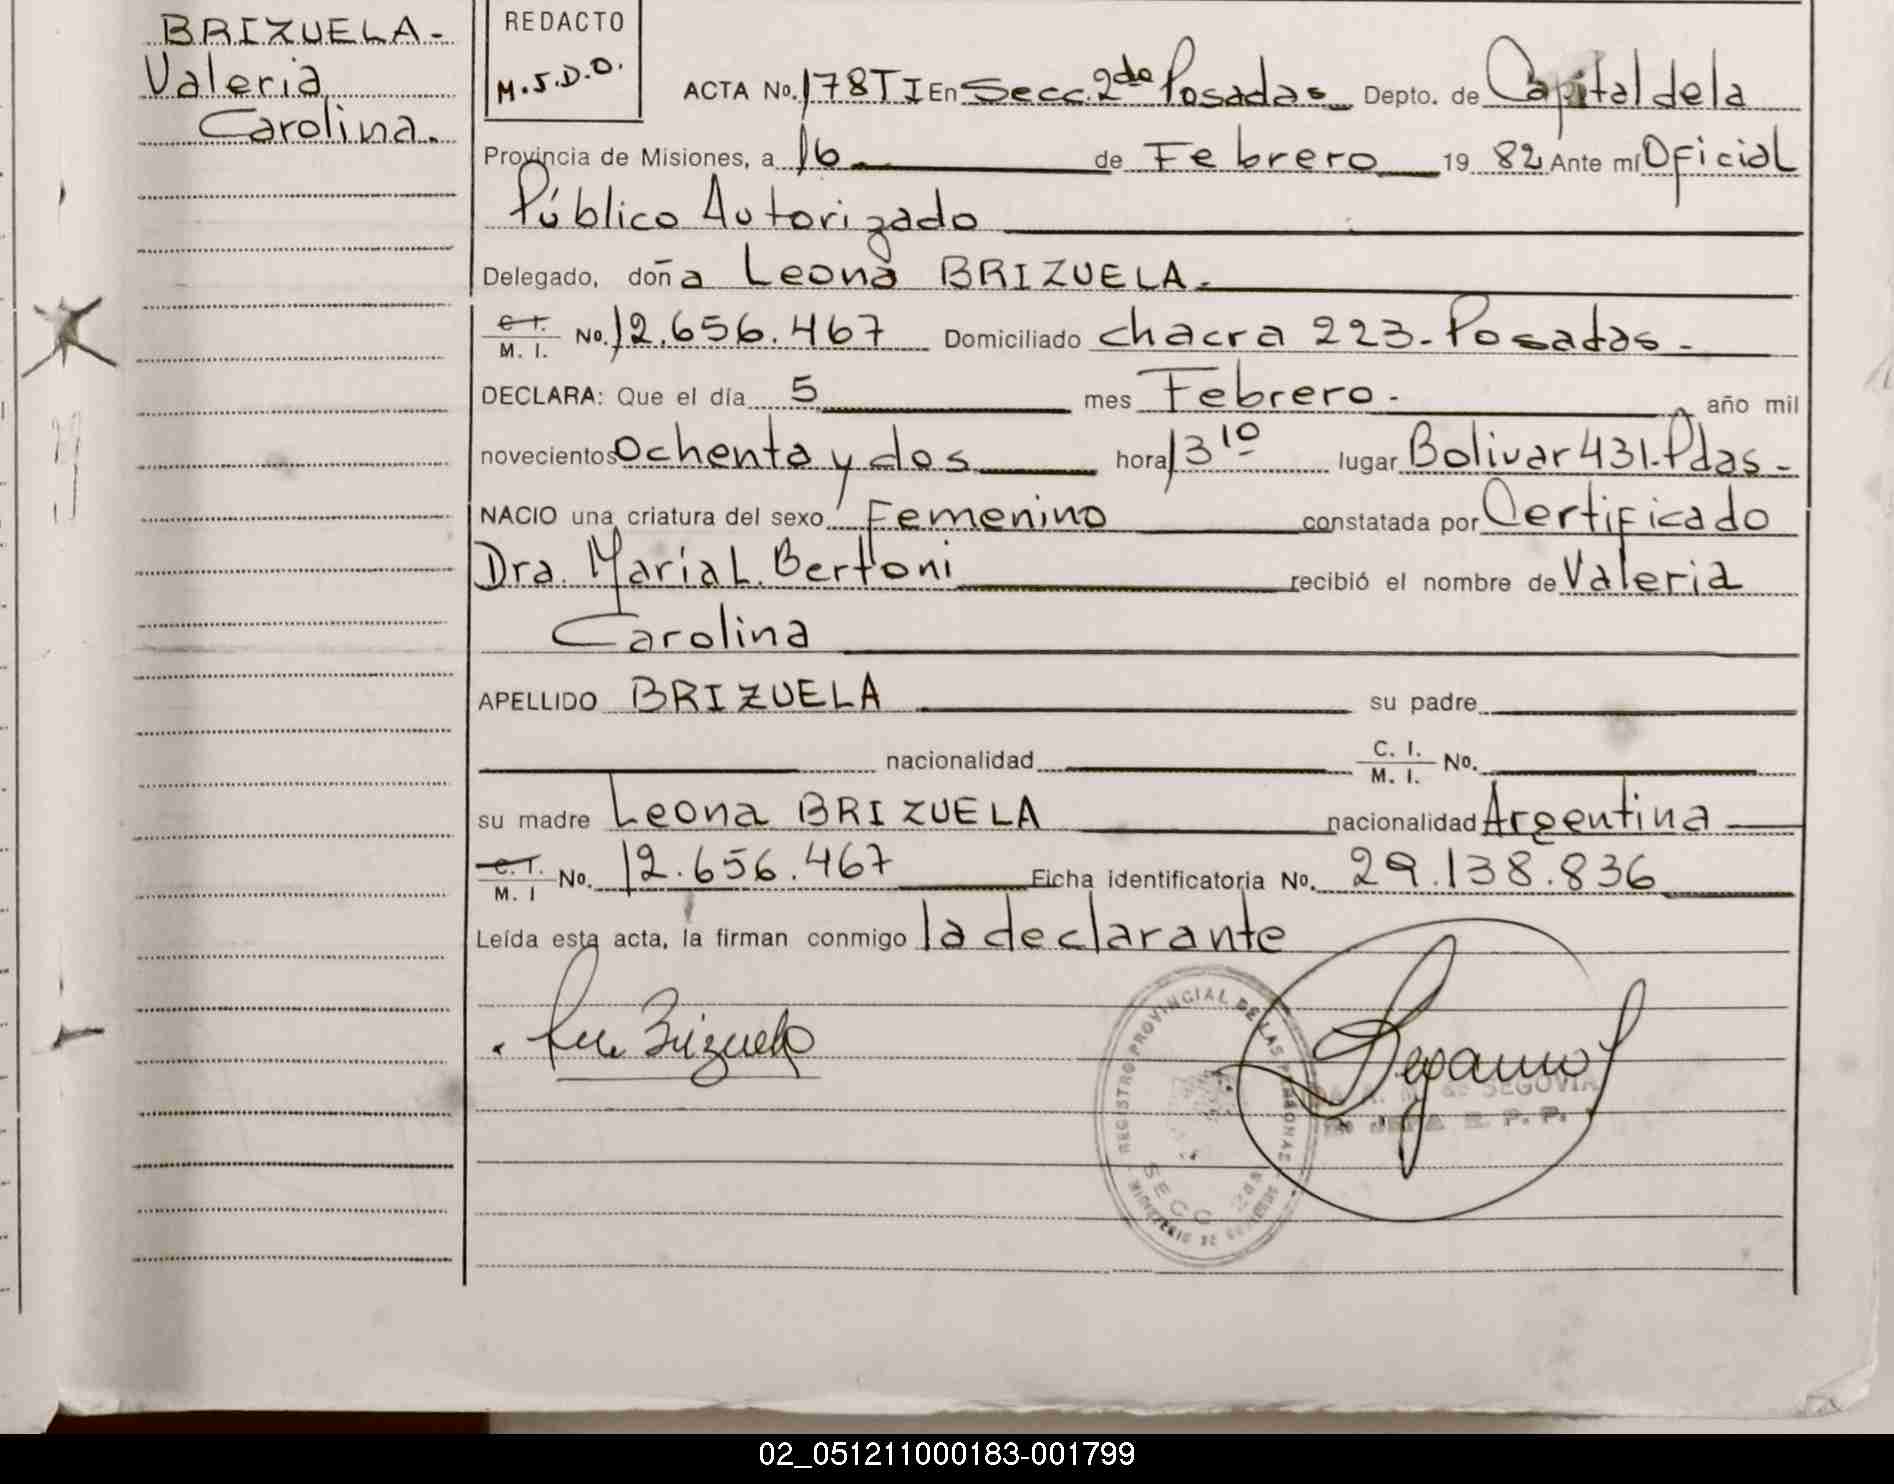 BRIZUELA-
Valeria
Carolina.
REDACTO
M.J.D.O.
ACTA No. 178 T I En Secc. 2da Posadas Depto. de Capital de la
Provincia de Misiones, a 16 de Febrero 19 82 Ante mí Oficial
Público Autorizado
Delegado, doña Leona BRIZUELA.
C. I. / M. I. No. 12.656.467 Domiciliado chacra 223-Posadas-
DECLARA: Que el día 5 mes Febrero- año mil
novecientos ochenta y dos hora 13 10 lugar Bolivar 431-Pdas-
NACIO una criatura del sexo Femenino constatada por Certificado
Dra. María L. Bertoni recibió el nombre de Valeria
Carolina
APELLIDO BRIZUELA su padre
nacionalidad C. I. / M. I. No.
su madre Leona BRIZUELA nacionalidad Argentina
C. I. / M. I No. 12.656.467 Ficha identificatoria No. 29.138.836
Leída esta acta, la firman conmigo la declarante
Brizuela
REGISTRO PROVINCIAL DE LAS PERSONAS
SEGOVIA
JEFA R. P. P.
02_051211000183-001799